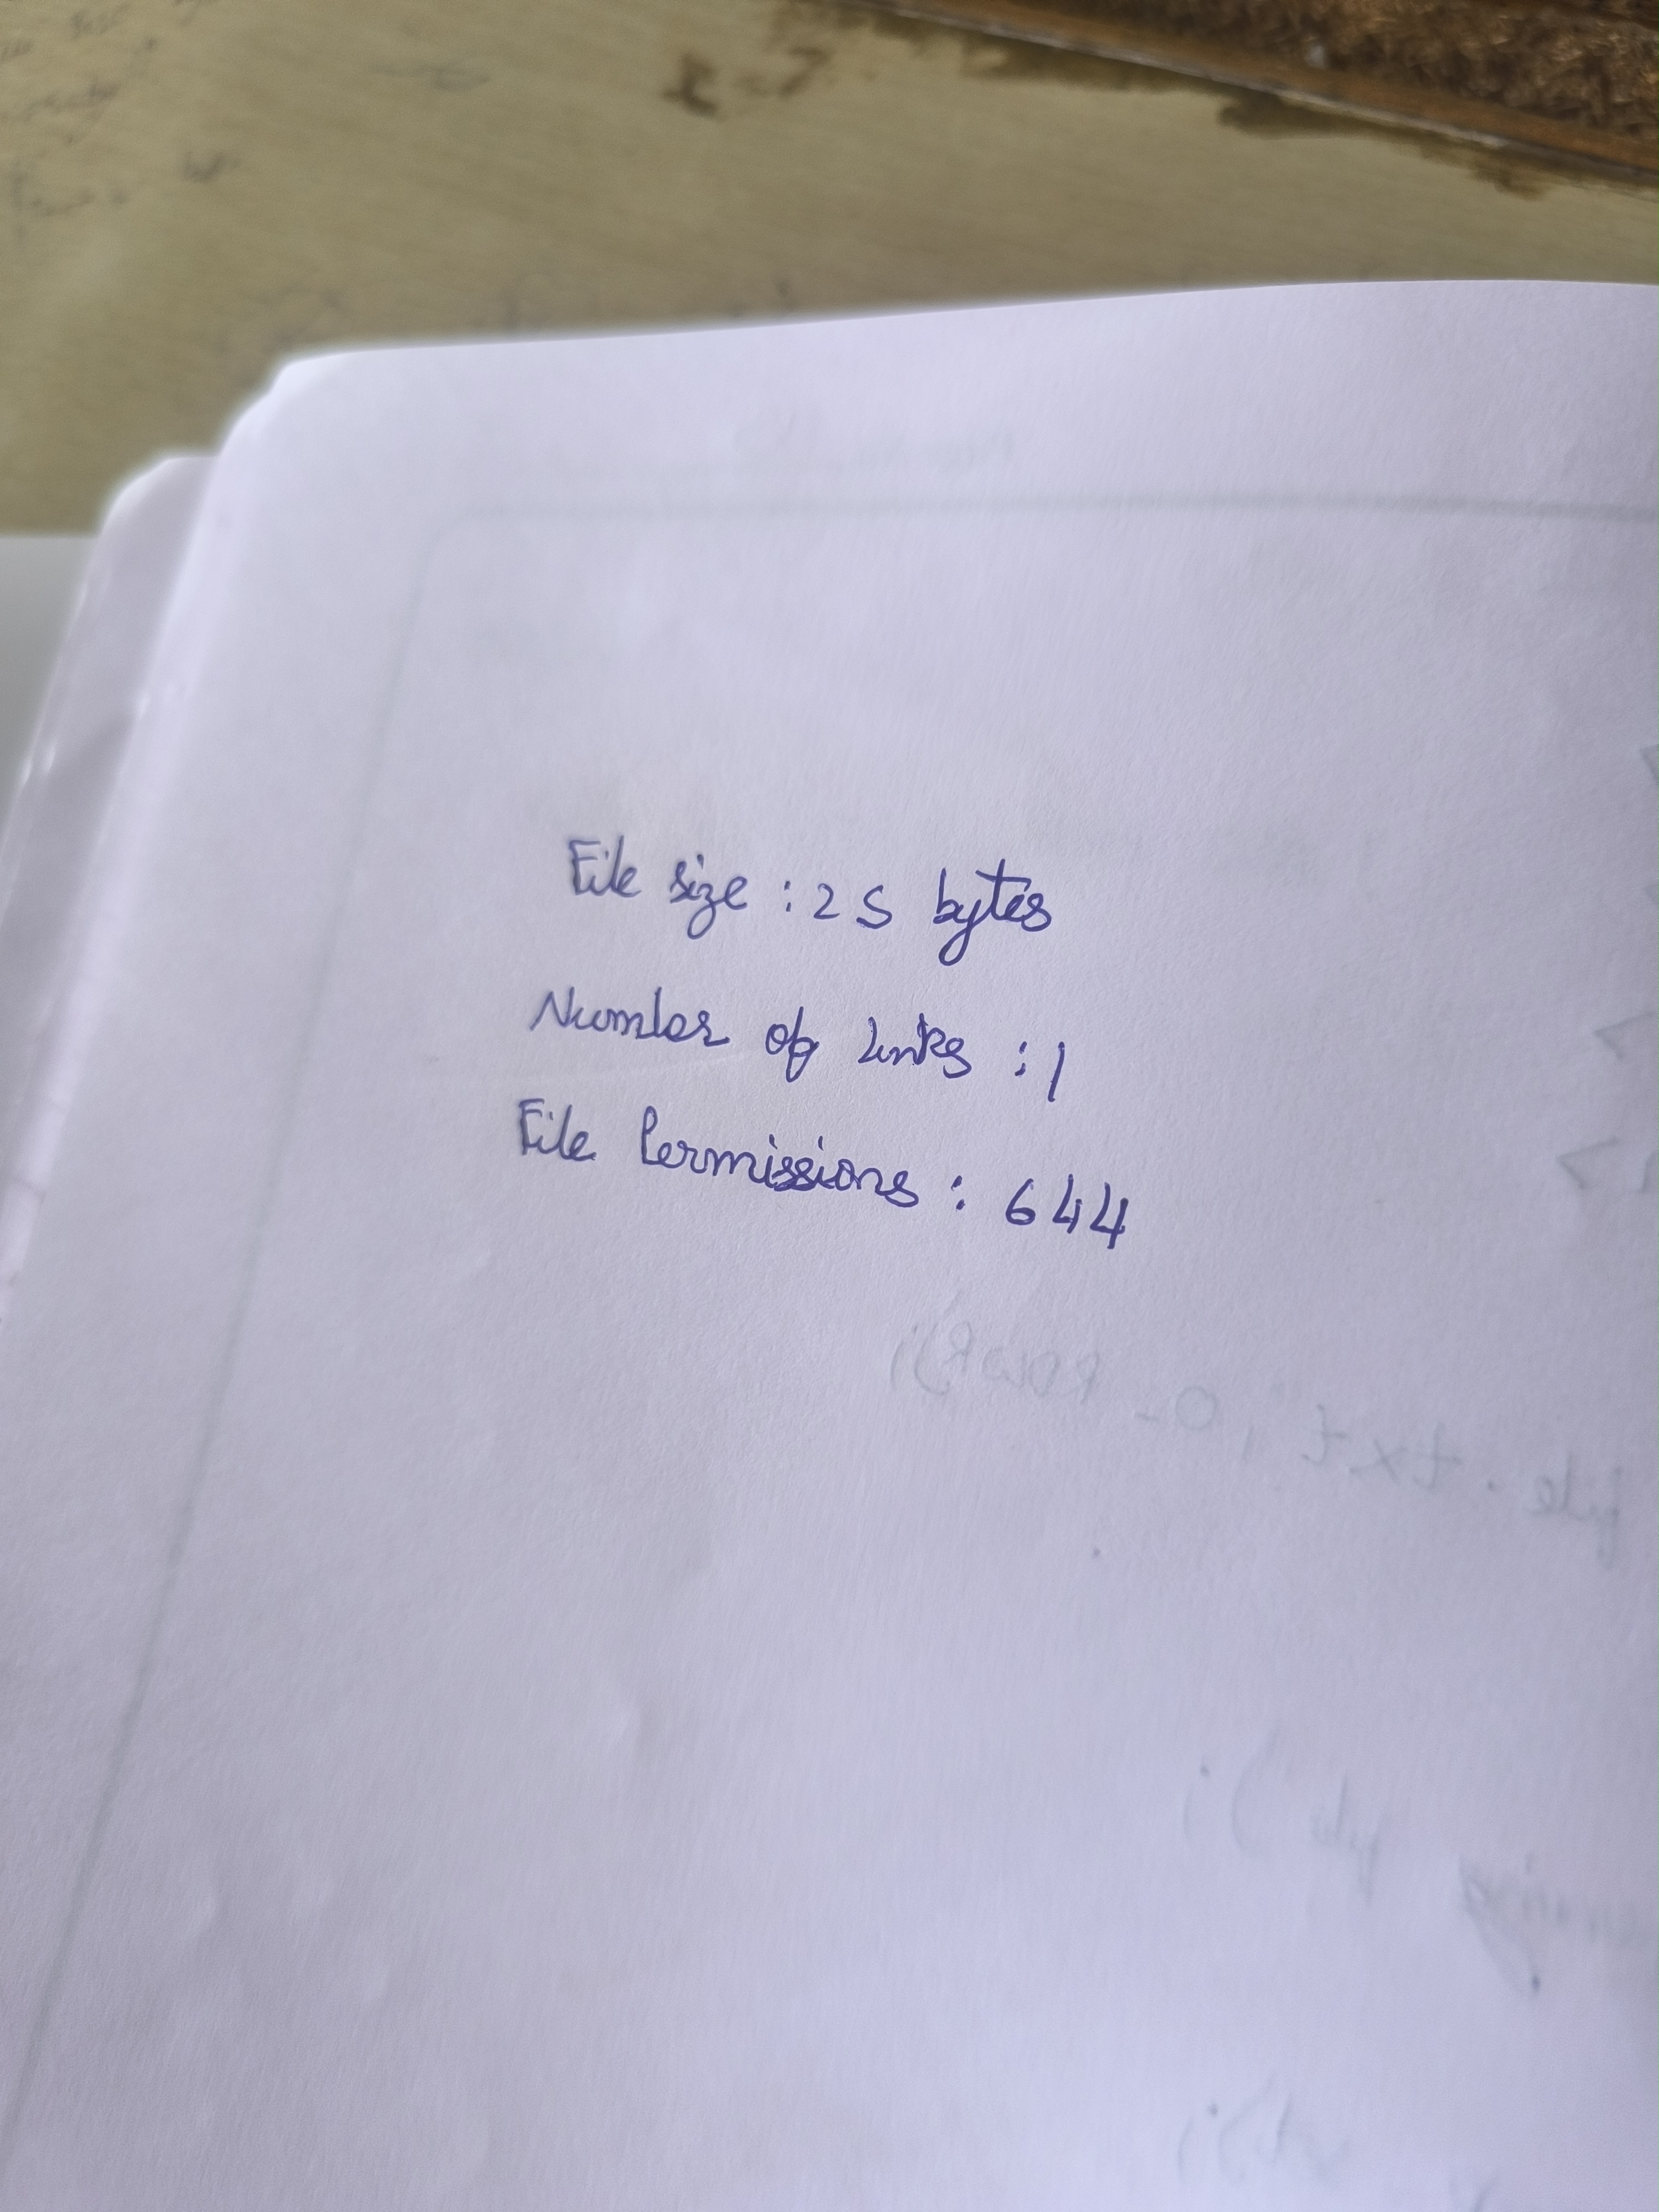 File size : 25 bytes
Number of links : 1
File Permissions : 644